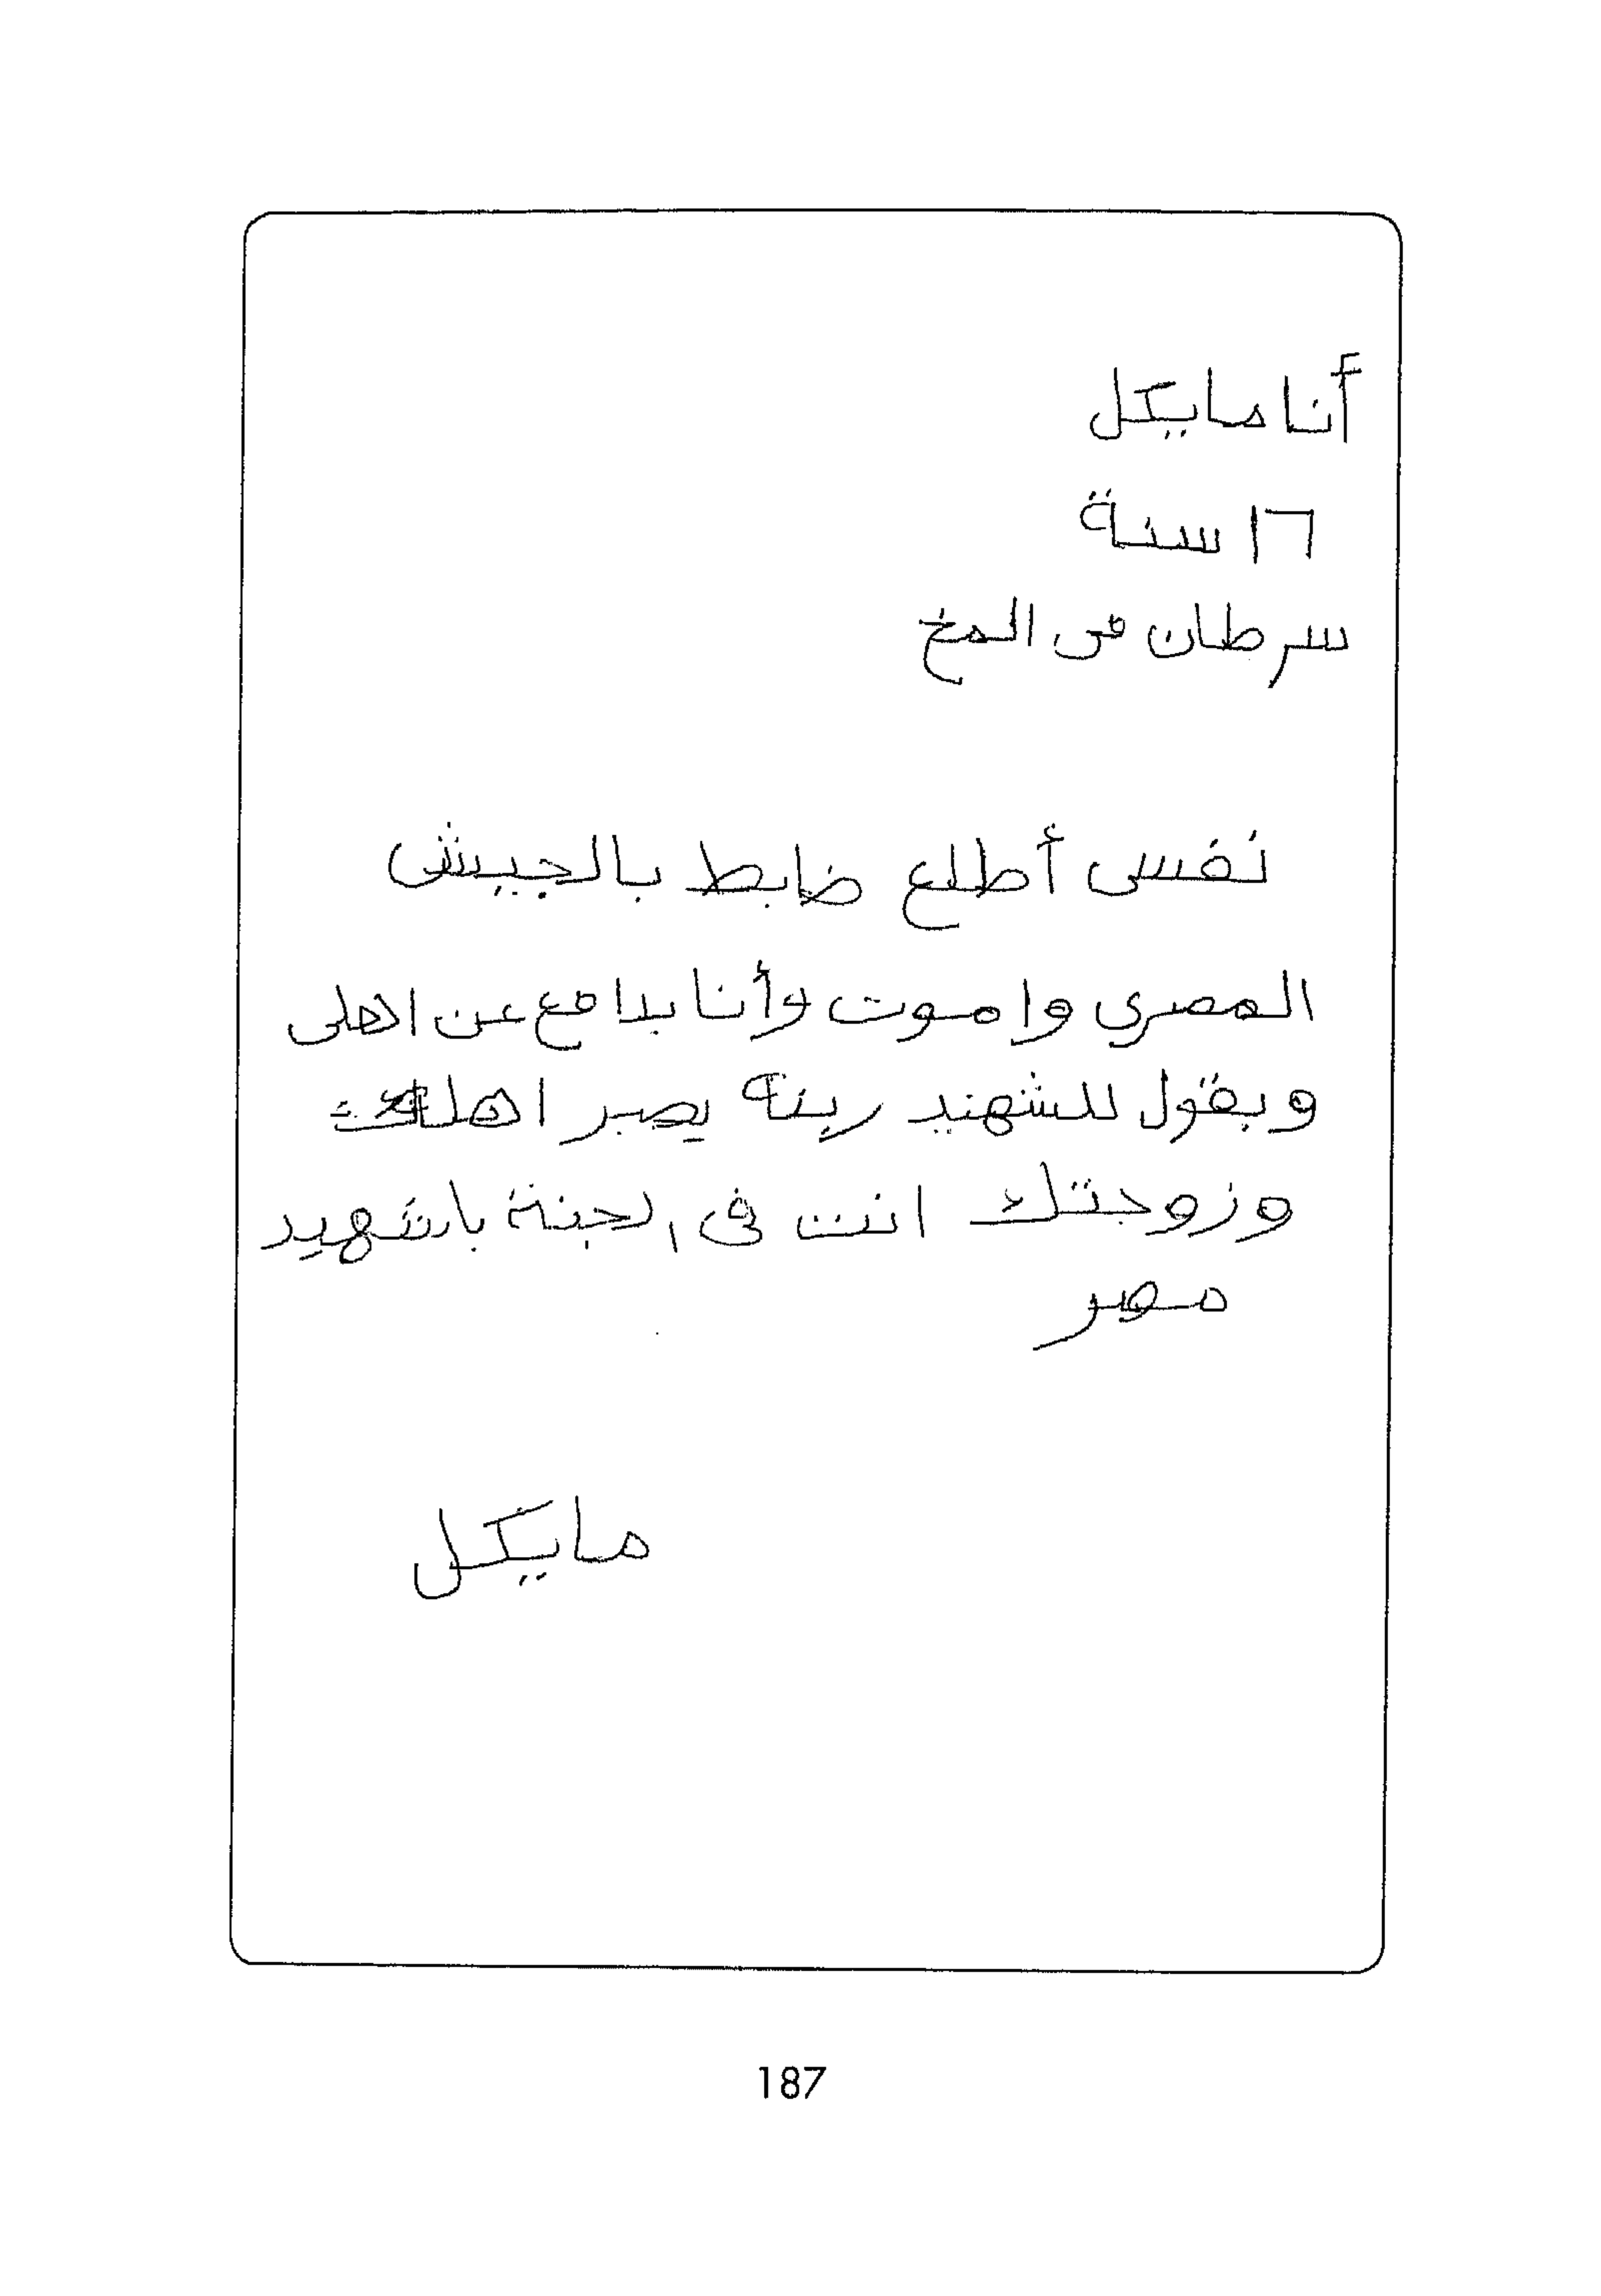 أنا مايكل
١٦ سنة
سرطان فى المخ
نفسى أطلع ضابط بالجيش
المصري واموت وأنا بدافع عن اهلى
وبقول للشهيد ربنه يصبر اهلك
وزوجتك انت فى الجنة ياشهيد
مصر
مايكل
187